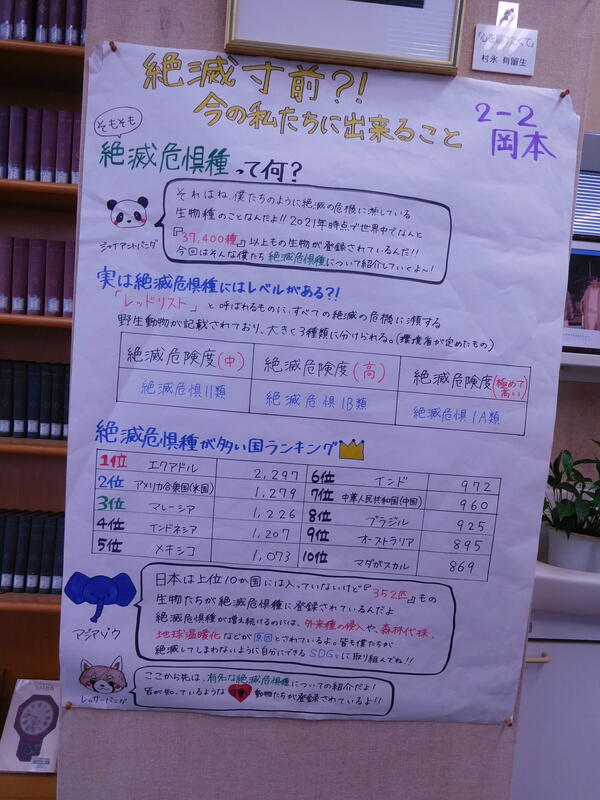 「心を届けたくて」
村永 有留生
絶滅寸前?!
今の私たちに出来ること
2-2
岡本
そもそも
絶滅危惧種って何?
それはね、僕たちのように絶滅の危機に瀕している
生物種のことなんだよ!! 2021年時点で世界中でなんと
『37,400種』以上もの生物が登録されているんだ!!
今回はそんな僕たち絶滅危惧種について紹介していくよ〜!
ジャイアントパンダ
実は絶滅危惧種にはレベルがある?!
「レッドリスト」と呼ばれるものに、すべての絶滅の危機に瀕する
野生動物が記載されており、大きく3種類に分けられる。(環境省が定めたもの)
絶滅危険度(中) 絶滅危険度(高) 絶滅危険度(極めて高い)
絶滅危惧II類 絶滅危惧IB類 絶滅危惧IA類
絶滅危惧種が多い国ランキング
1位 エクアドル 2,297 6位 インド 972
2位 アメリカ合衆国(米国) 1,279 7位 中華人民共和国(中国) 960
3位 マレーシア 1,226 8位 ブラジル 925
4位 インドネシア 1,207 9位 オーストラリア 895
5位 メキシコ 1,073 10位 マダガスカル 869
日本は上位10か国には入っていないけど『352匹』もの
生物たちが絶滅危惧種に登録されているんだよ
絶滅危惧種が増え続けるのには、外来種の侵入や、森林代採、
地球温暖化などが原因とされているよ。皆も僕たちが
絶滅してしまわないように自分にできるSDGsに取り組んでね!!
アジアゾウ
ここから先は、有名な絶滅危惧種についての紹介だよ!
皆が知っているような可愛い動物たちが登録されているよ!!
レッサーパンダ